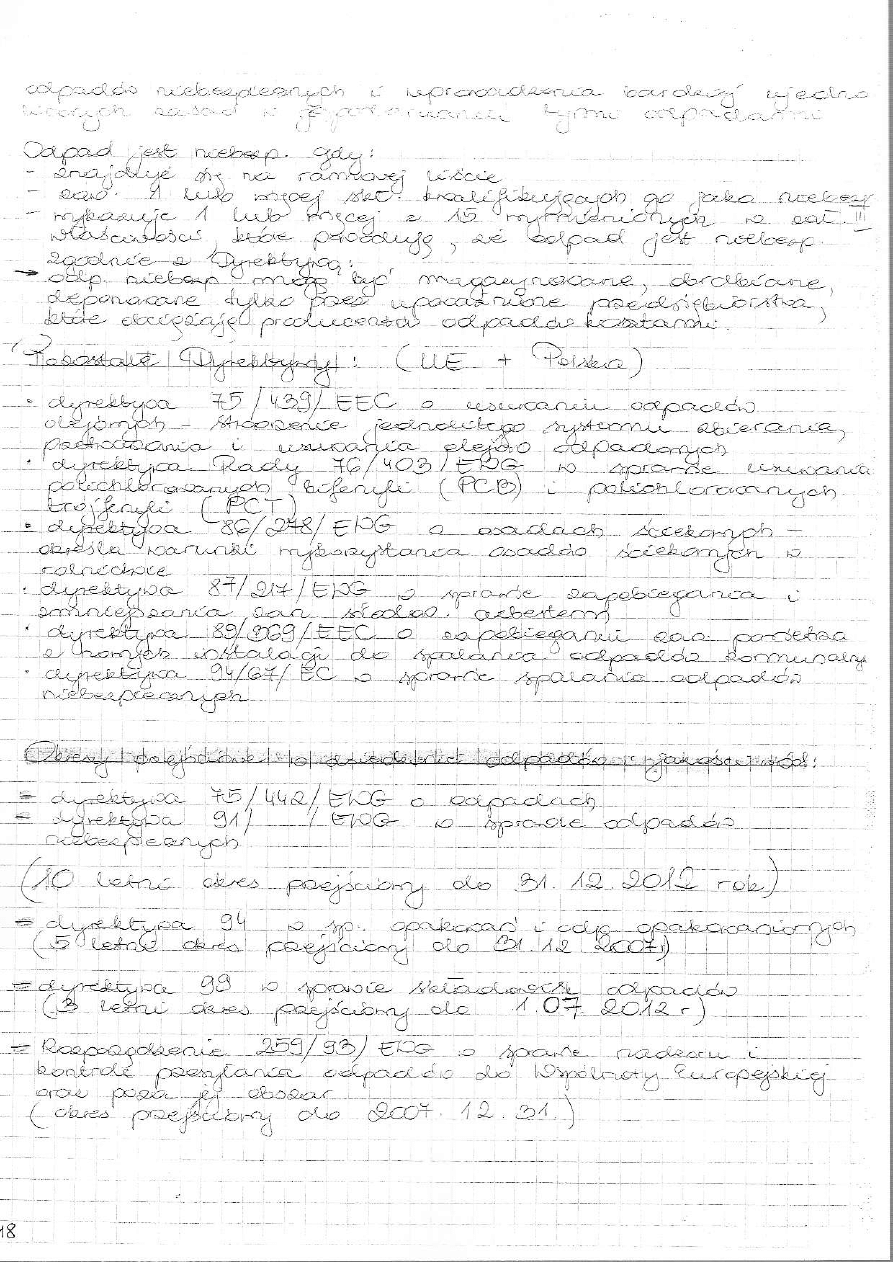 odpadów niebezpiecznych i wprowadzenia bardziej ujedno
liconych zasad w gospodarowaniu tymi odpadami
Odpad jest niebezp. gdy:
- znajduje się na ramowej liście
- zaw. 1 lub więcej skł. kwalifikujących go jako niebezp
- wykazuje 1 lub więcej z 15 wymienionych w zał. III
właściwości, które powodują, że odpad jest niebezp.
zgodnie z Dyrektywą:
→ odp. niebezp mogą być magazynowane, obrabiane,
deponowane tylko przez upoważnione przedsiębiorstwa,
które obciążają producentów odpadów kosztami.
Pozostałe Dyrektywy: (UE + Polska)
• dyrektywa 75/439/EEC o usuwaniu odpadów
olejowych - stworzenie jednolitego systemu zbierania,
i usuwania olejów odpadowych
• dyrektywa Rady 76/403/EWG w sprawie usuwania
polichlorowanych bifenyli (PCB) i polichlorowanych
trójfenyli (PCT)
• dyrektywa 86/278/EWG o osadach ściekowych -
określa warunki wykorzystania osadów ściekowych w
rolnictwie
• dyrektywa 87/217/EWG w sprawie zapobiegania i
zmniejszania zan środow. azbestem
• dyrektywa 89/369/EEC o zapobieganiu zan powietrza
z nowych instalacji do spalania odpadów komunalny
• dyrektywa 94/67/EC w sprawie spalania odpadów
niebezpiecznych
Okresy przejściowe w dziedzinie odpadów i jakości wód:
= dyrektywa 75/442/EWG o odpadach
= dyrektywa 91/ /EWG w sprawie odpadów
niebezpiecznych
(10 letni okres przejściowy do 31. 12. 2012 rok)
= dyrektywa 94 w sp. opakowań i odp opakowaniowych
(5 letni okres przejściowy do 31.12 2007)
= dyrektywa 99 w sprawie składowisk odpadów
(3 letni okres przejściowy do 1.07. 2012 r)
= Rozporządzenie 259/93/EWG w sprawie nadzoru i
kontroli przesyłania odpadów do Wspólnoty Europejskiej
oraz poza jej obszar
(okres przejściowy do 2007. 12. 31.)
18